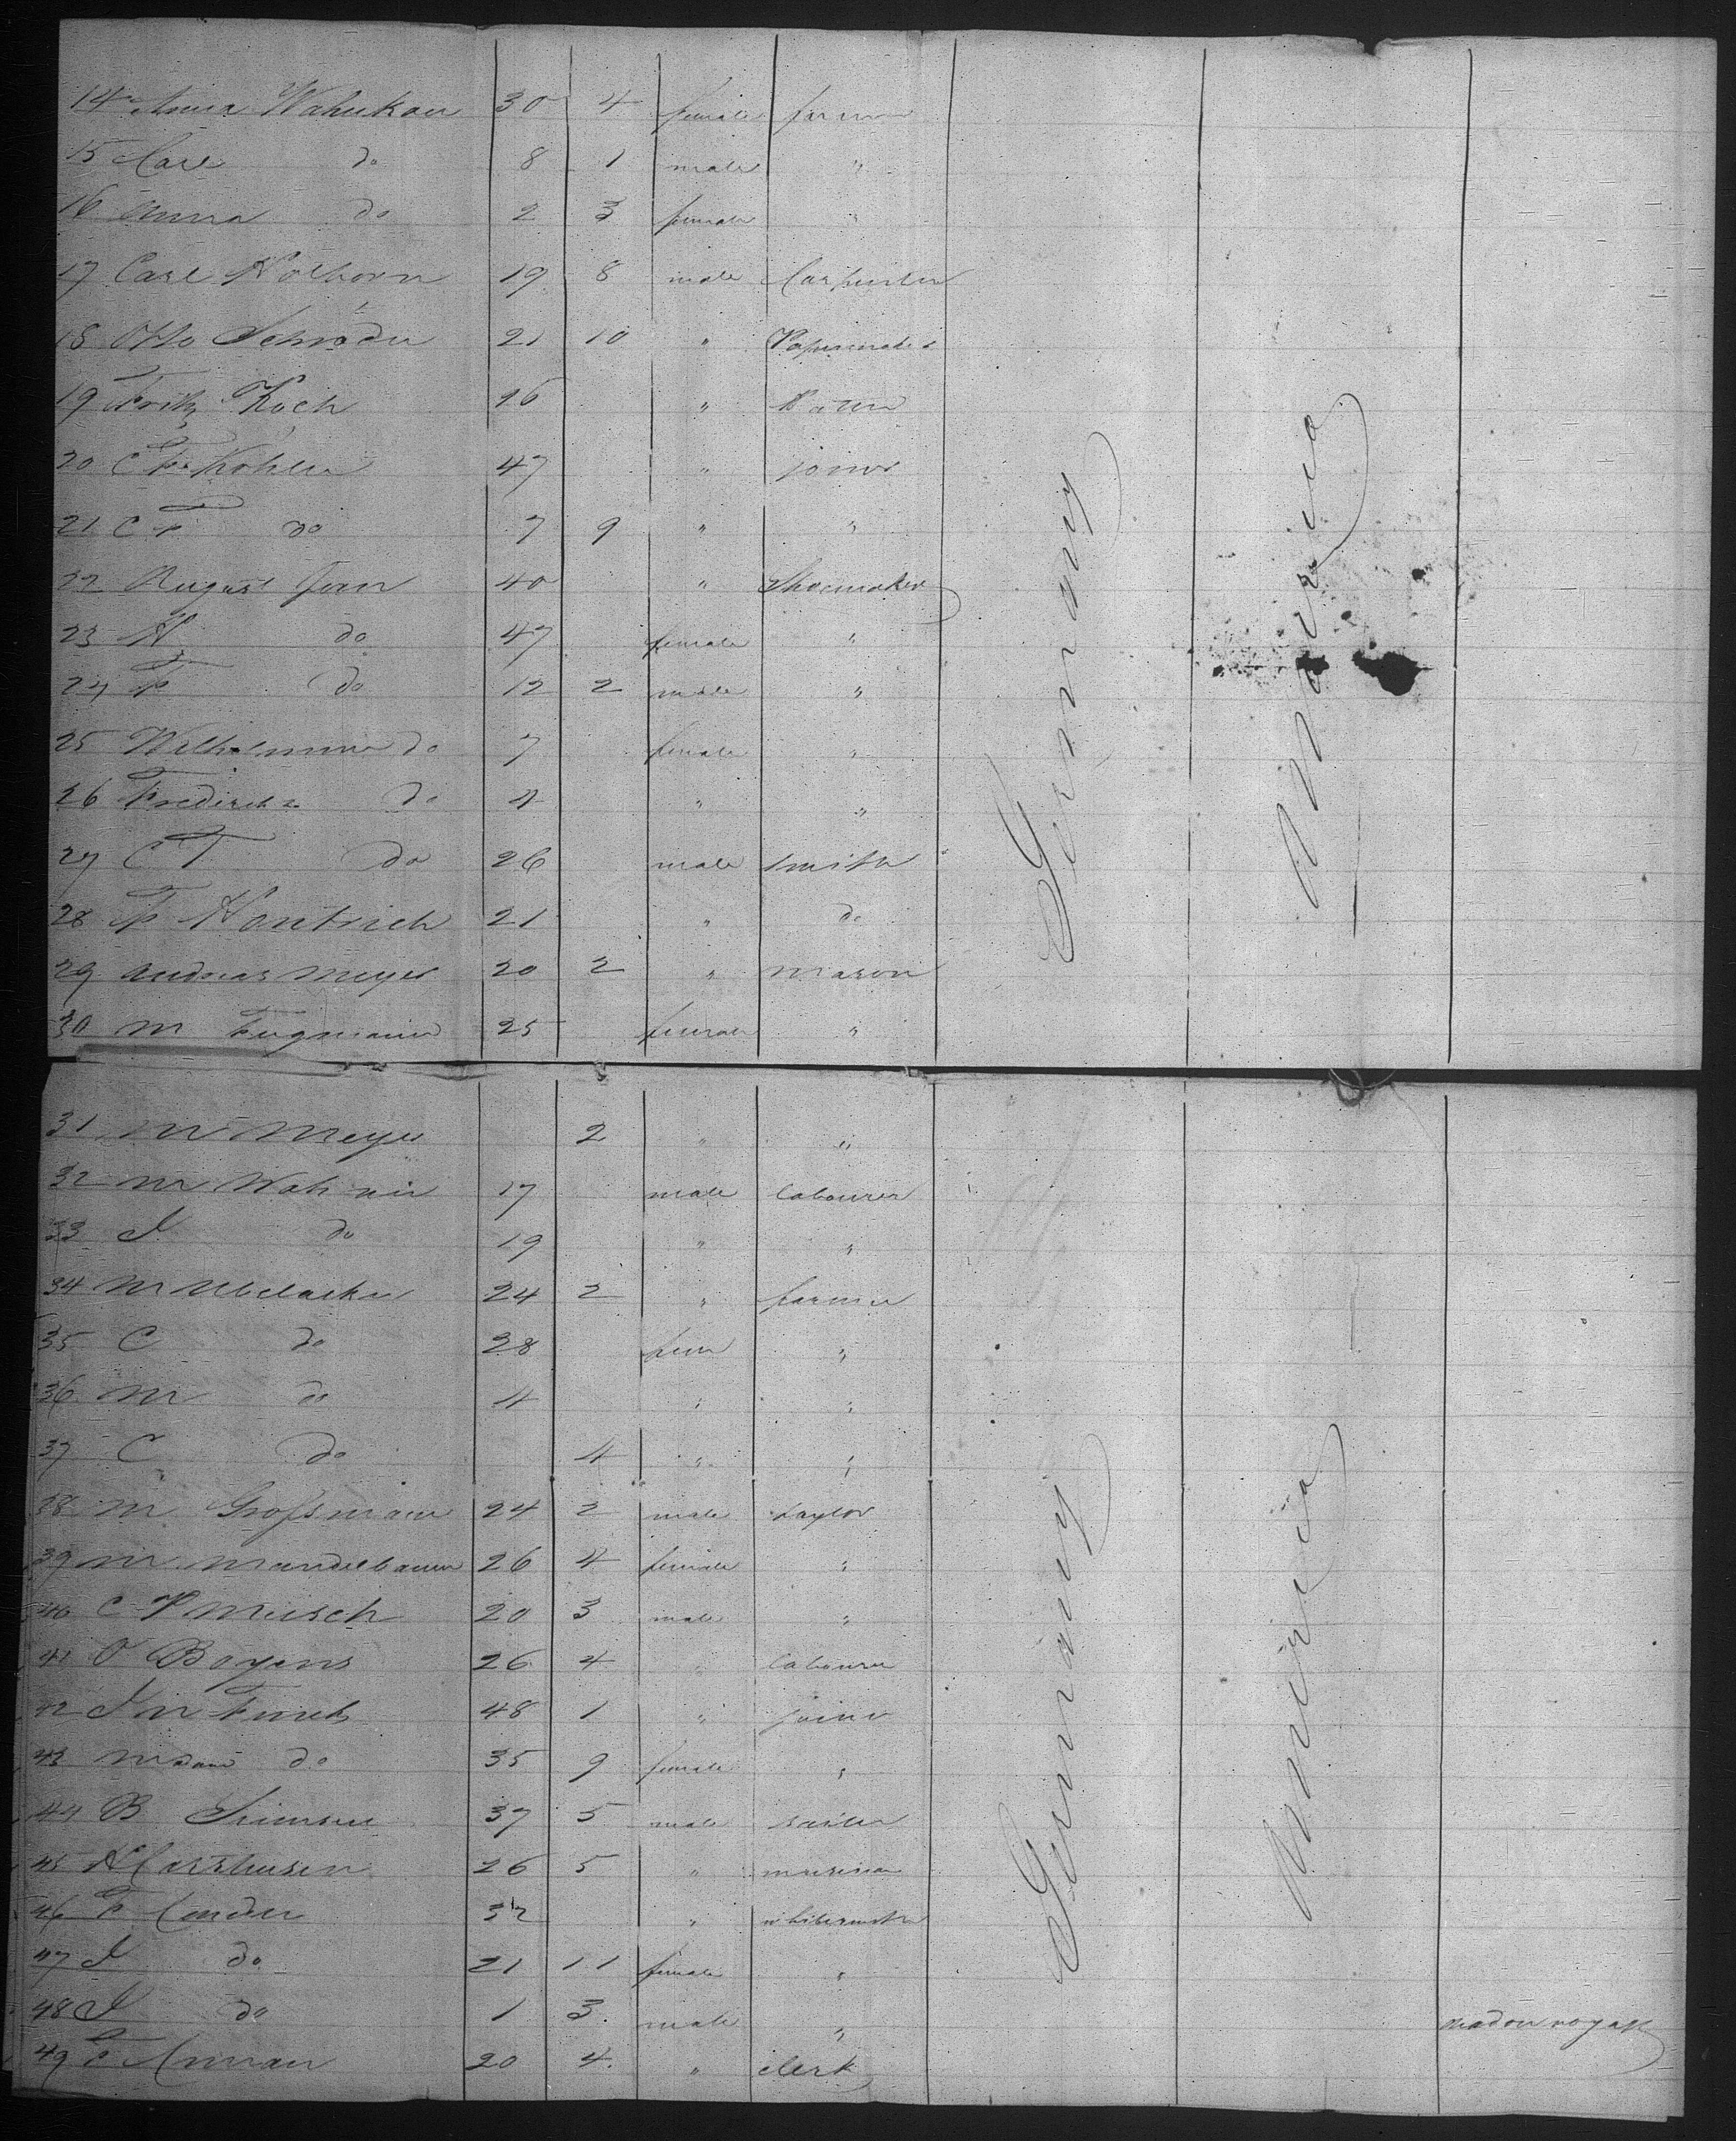 14 Anna Wahukan 30 4 female farmer
15 Carl do 8 1 male "
16 Anna do 2 3 female "
17 Carl Nolhorn 19 8 male Carpenter
18 Otto Schroder 21 10 " Papermaker
19 Fritz Koch 26 "
20 C F Kohler 47 " joiner
21 C F do 7 9 " "
22 August Jan 40 " Shoemaker
23 H do 47 female "
24 F do 12 2 male "
25 Wilhelmine do 7 female "
26 Fredircka do 4 " "
27 C T do 26 male smith
28 F Hontrich 21 " do
29 Andreas Meyer 20 2 " mason
30 M Fugmann 25 female "
Germany
America
31 M Meyer 2 " "
32 M 17 male labourer
33 J do 19 " "
34 M Ubelacker 24 2 " farmer
35 C do 28 fem "
36 M do 4 " "
37 C do 4 " "
38 M Grossmann 24 2 male taylor
39 M Mandelbaum 26 4 female "
40 C P Mersch 20 3 male "
41 O Boyens 26 4 " labourer
42 J M Finck 48 1 " joiner
43 Madam do 35 9 female "
44 B Siemsen 37 5 male sailer
45 H Carshusen 26 5 " musician
46 F Conder 32 "
47 J do 21 11 female "
48 J do 1 3 male "
49 F Annan 20 4 " clerk
Germany
America